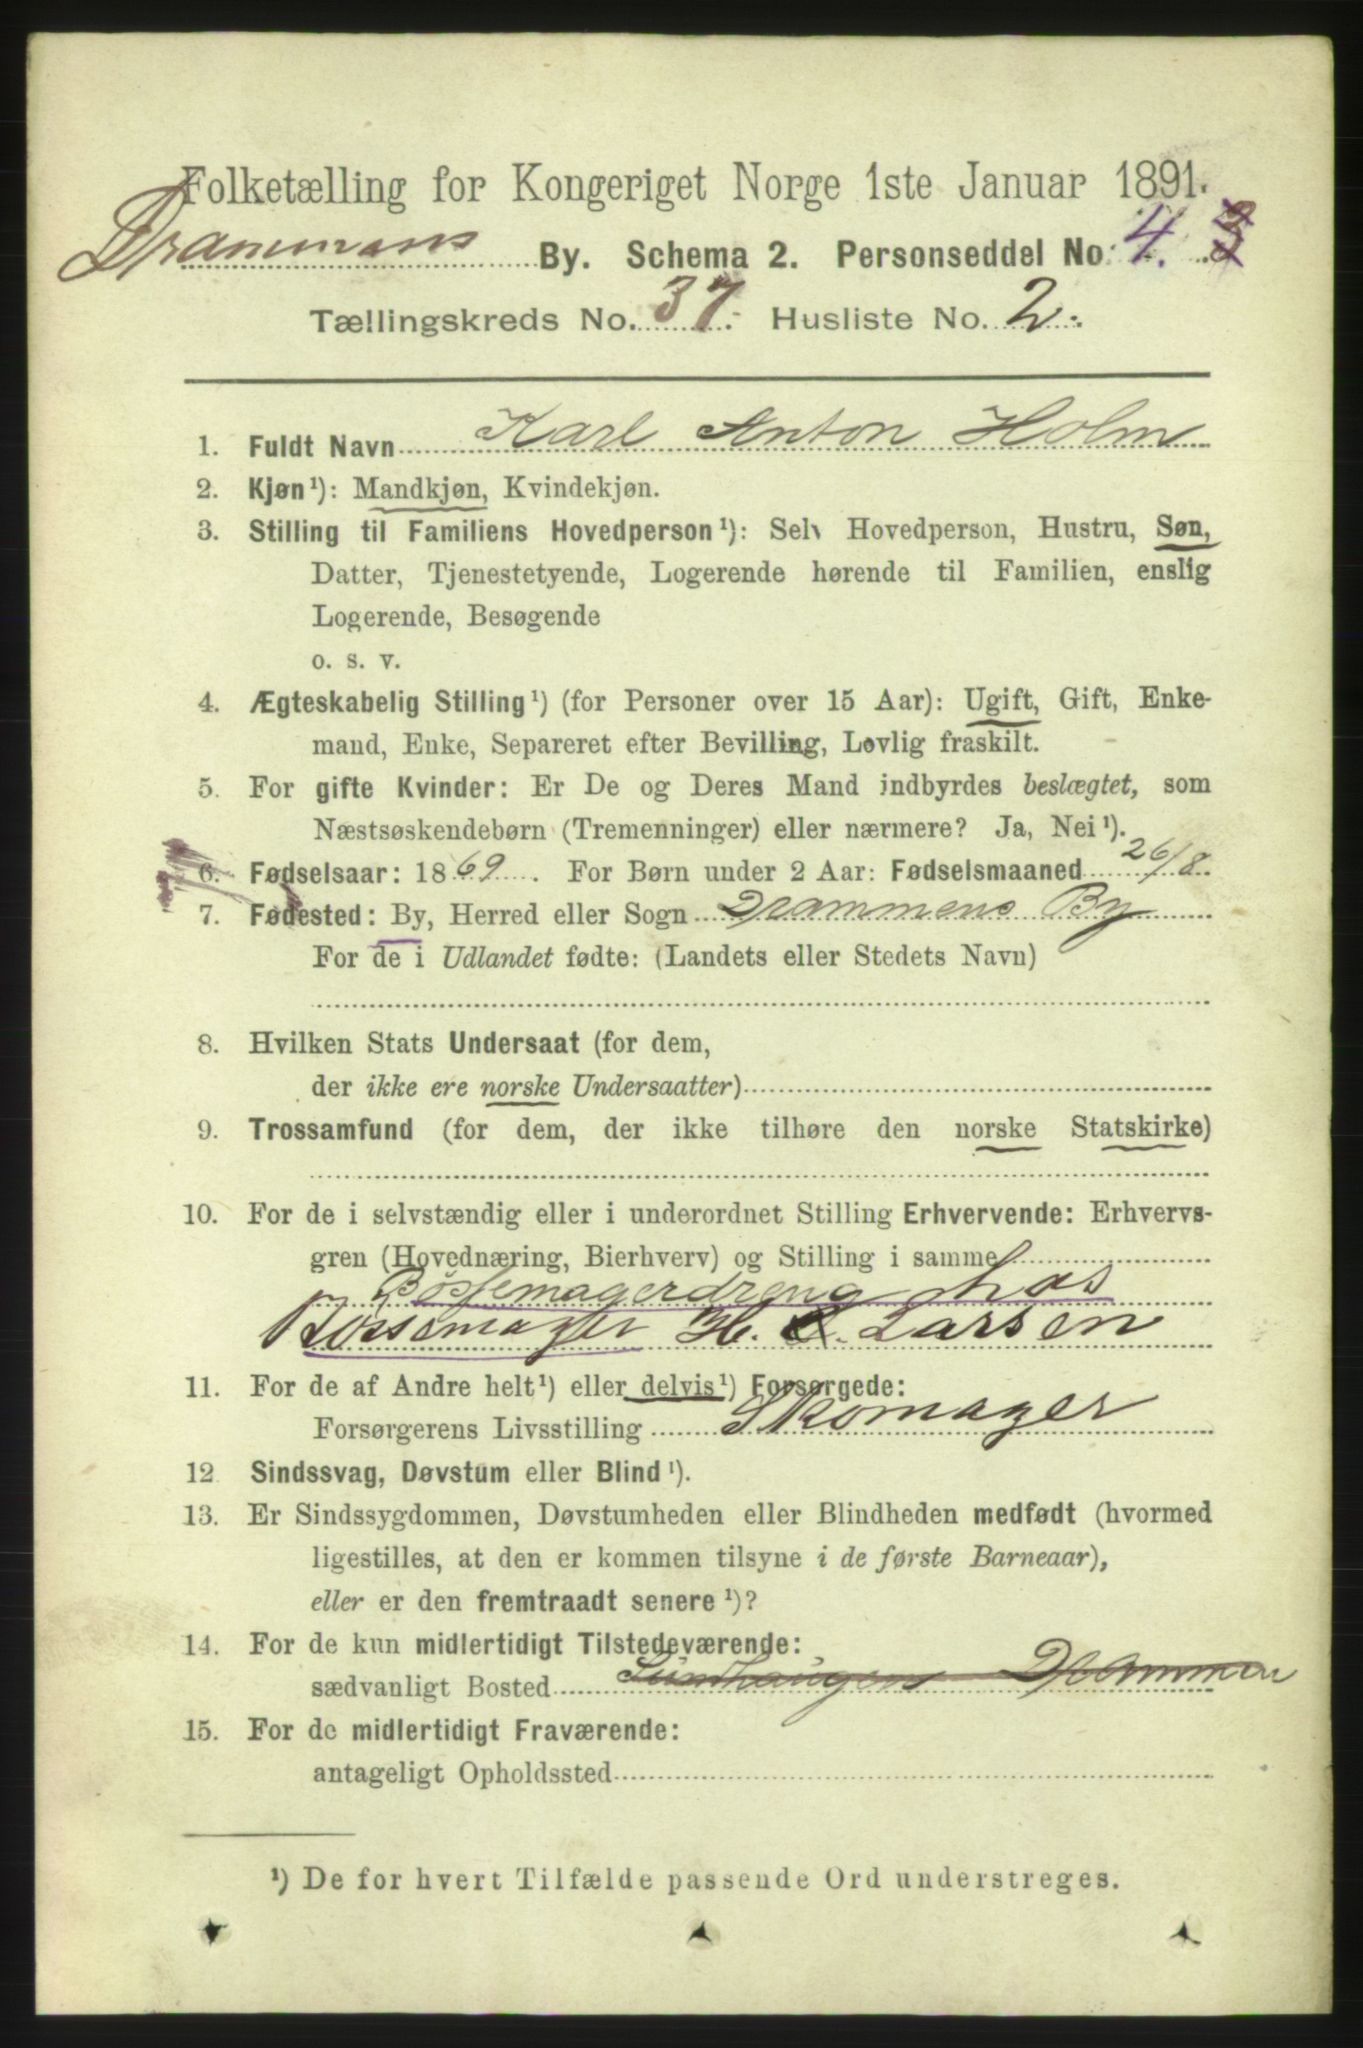 Folketælling for Kongeriget Norge 1ste Januar 1891.
Drammens By. Schema 2. Personseddel No. 4.
Tællingskreds No. 37. Husliste No. 2.
1. Fuldt Navn Karl Anton Holm
2. Kjøn¹): Mandkjøn, Kvindekjøn.
3. Stilling til Familiens Hovedperson¹): Selv Hovedperson, Hustru, Søn,
Datter, Tjenestetyende, Logerende hørende til Familien, enslig
Logerende, Besøgende
o. s. v.
4. Ægteskabelig Stilling¹) (for Personer over 15 Aar): Ugift, Gift, Enke-
mand, Enke, Separeret efter Bevilling, Lovlig fraskilt.
5. For gifte Kvinder: Er De og Deres Mand indbyrdes beslægtet, som
Næstsøskendebørn (Tremenninger) eller nærmere? Ja, Nei¹).
6. Fødselsaar: 1869. For Børn under 2 Aar: Fødselsmaaned 26/8.
7. Fødested: By, Herred eller Sogn Drammens By
For de i Udlandet fødte: (Landets eller Stedets Navn)
8. Hvilken Stats Undersaat (for dem,
der ikke ere norske Undersaatter)
9. Trossamfund (for dem, der ikke tilhøre den norske Statskirke)
10. For de i selvstændig eller i underordnet Stilling Erhvervende: Erhvervs-
gren (Hovednæring, Bierhverv) og Stilling i samme
Bössemagerdreng hos
Bössemager H. Larsen
11. For de af Andre helt¹) eller delvis¹) Forsørgede:
Forsørgerens Livsstilling Skomager
12. Sindssvag, Døvstum eller Blind¹).
13. Er Sindssygdommen, Døvstumheden eller Blindheden medfødt (hvormed
ligestilles, at den er kommen tilsyne i de første Barneaar),
eller er den fremtraadt senere¹)?
14. For de kun midlertidigt Tilstedeværende:
sædvanligt Bosted Drammen
15. For de midlertidigt Fraværende:
antageligt Opholdssted
¹) De for hvert Tilfælde passende Ord understreges.